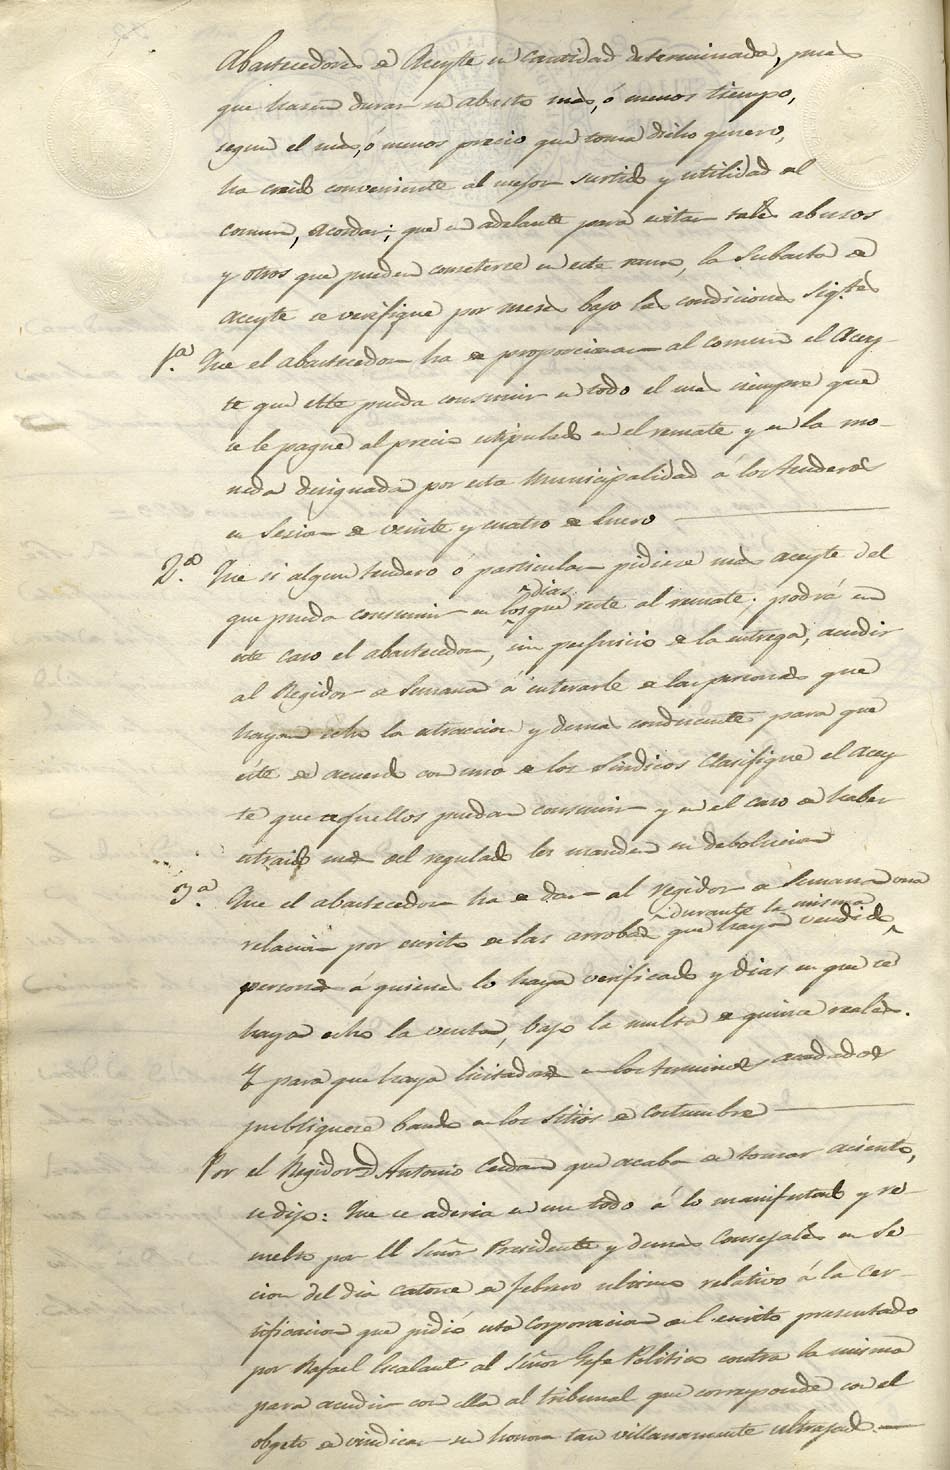 Abastecedores de Aceyte en Cantidad determinada, pues
que hacen durar su abasto mas, ó menos tiempo,
segun el mas, ó menos precio que toma dicho genero,
ha creido conveniente al mejor surtido y utilidad del
comun, acordar; que en adelante para evitar tales abusos
y otros que pueden cometerse en este ramo, la Subasta de
aceyte se verifique por meses bajo las condiciones Sig.tes
1.ª Que el abastecedor ha de proporcionar al comun el Acey-
te que este pueda consumir en todo el mes siempre que
se le pague al precio estipulado en el remate y en la mo-
neda designada por esta Municipalidad á los tenderos
en Sesion de veinte y cuatro de Enero
2.ª Que si algun tendero ó particular pidiere mas aceyte del
que pueda consumir en los dias que reste al remate; podrá en
este caso el abastecedor, sin perjuicio de la entrega, acudir
al Regidor de Semana á enterarle de las personas que
hayan echo la atraccion y demas conducente para que
éste de acuerdo con uno de los Sindicos Clasifique el Acey
te que aquellos puedan consumir y en el caso de haber
atraido mas del regulado les manden su debolucion
3.ª Que el abastecedor ha de dar al regidor de Semana una
relacion por escrito de las arrobas que haya vendido durante la misma
personas á quienes lo haya verificado y dias en que se
haya echo la venta, bajo la multa de quince reales.
Y para que haya licitadores en los terminos acordados
publiquese bando en los Sitios de Costumbre
Por el Regidor D. Antonio Cerdan que acaba de tomar asiento,
se dijo: Que se aderia en un todo á lo manifestado y re-
suelto por el Señor Presidente y demas Consejales en Se-
cion del dia catorce de febrero ultimo relativo á la Cer-
tificacion que pidió esta Corporacion del escrito presentado
por Rafael Escalant al Señor Gefe Politico contra la misma
para acudir con ella al tribunal que corresponde con el
objeto de vindicar su honor tan villanamente ultrajado.